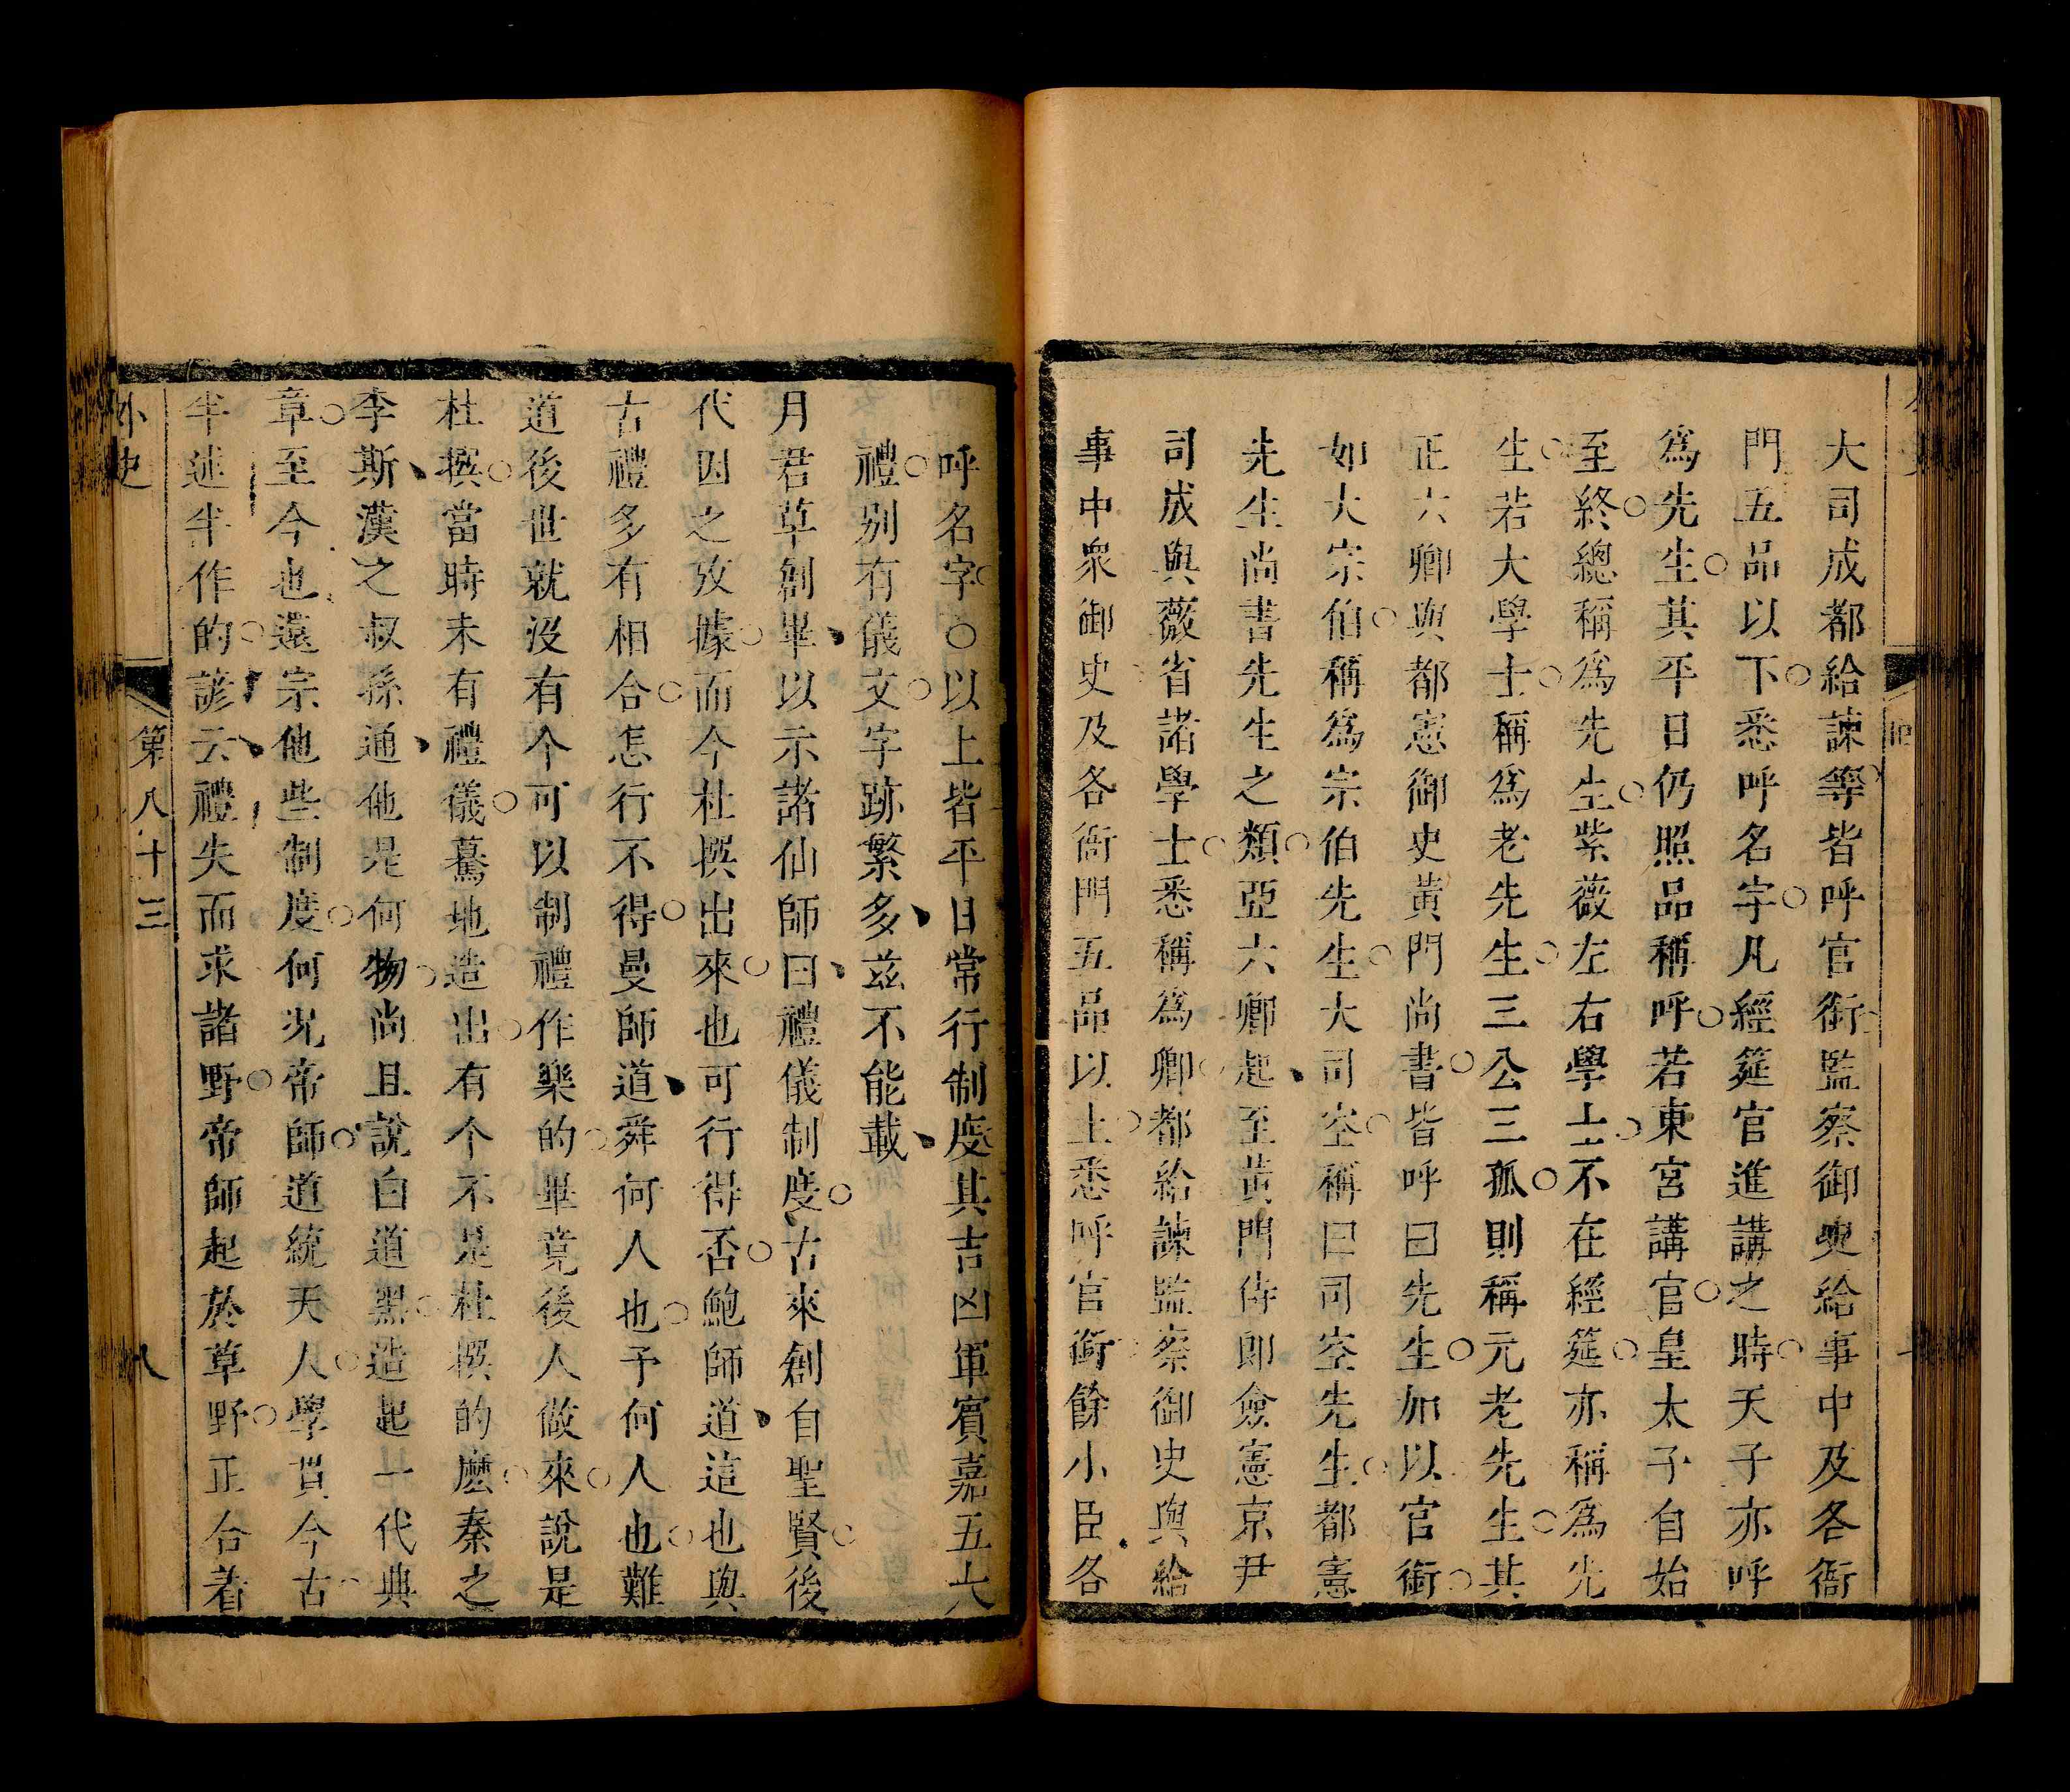 大司成都給諫等皆呼官銜監察御史給事中及各衙
門五品以下悉呼名字凡經筵官進講之時天子亦呼
爲先生其平日仍照品稱呼若東宮講官皇太子自始
至終總稱爲先生紫薇左右學士不在經筵亦稱爲先
生若大學士稱爲老先生三公三孤則稱元老先生其
正六卿與都憲御史黃門尚書皆呼曰先生加以官銜
如大宗伯稱爲宗伯先生大司空稱曰司空先生都憲
先生尚書先生之類亞六卿起至黃門侍郎僉憲京尹
司成與薇省諸學士悉稱爲卿都給諫監察御史與給
事中衆御史及各衙門五品以上悉呼官銜餘小臣各
呼名字○以上皆平日常行制度其吉凶軍賓嘉五大
禮別有儀文字跡繁多茲不能載
月君草創畢以示諸仙師曰禮儀制度古來創自聖賢後
代因之攷據而今杜撰出來也可行得否鮑師道這也與
古禮多有相合怎行不得曼師道舜何人也予何人也難
道後世就沒有个可以制禮作樂的畢竟後人做來說是
杜撰當時未有禮儀驀地造出有个不是杜撰的麽秦之
李斯漢之叔孫通他是何物尚且說白道黑造起一代典
章至今也還宗他些制度何况帝師道統天人學貫今古
半述半作的諺云禮失而求諸野帝師起於草野正合着
外史
第八十三
八